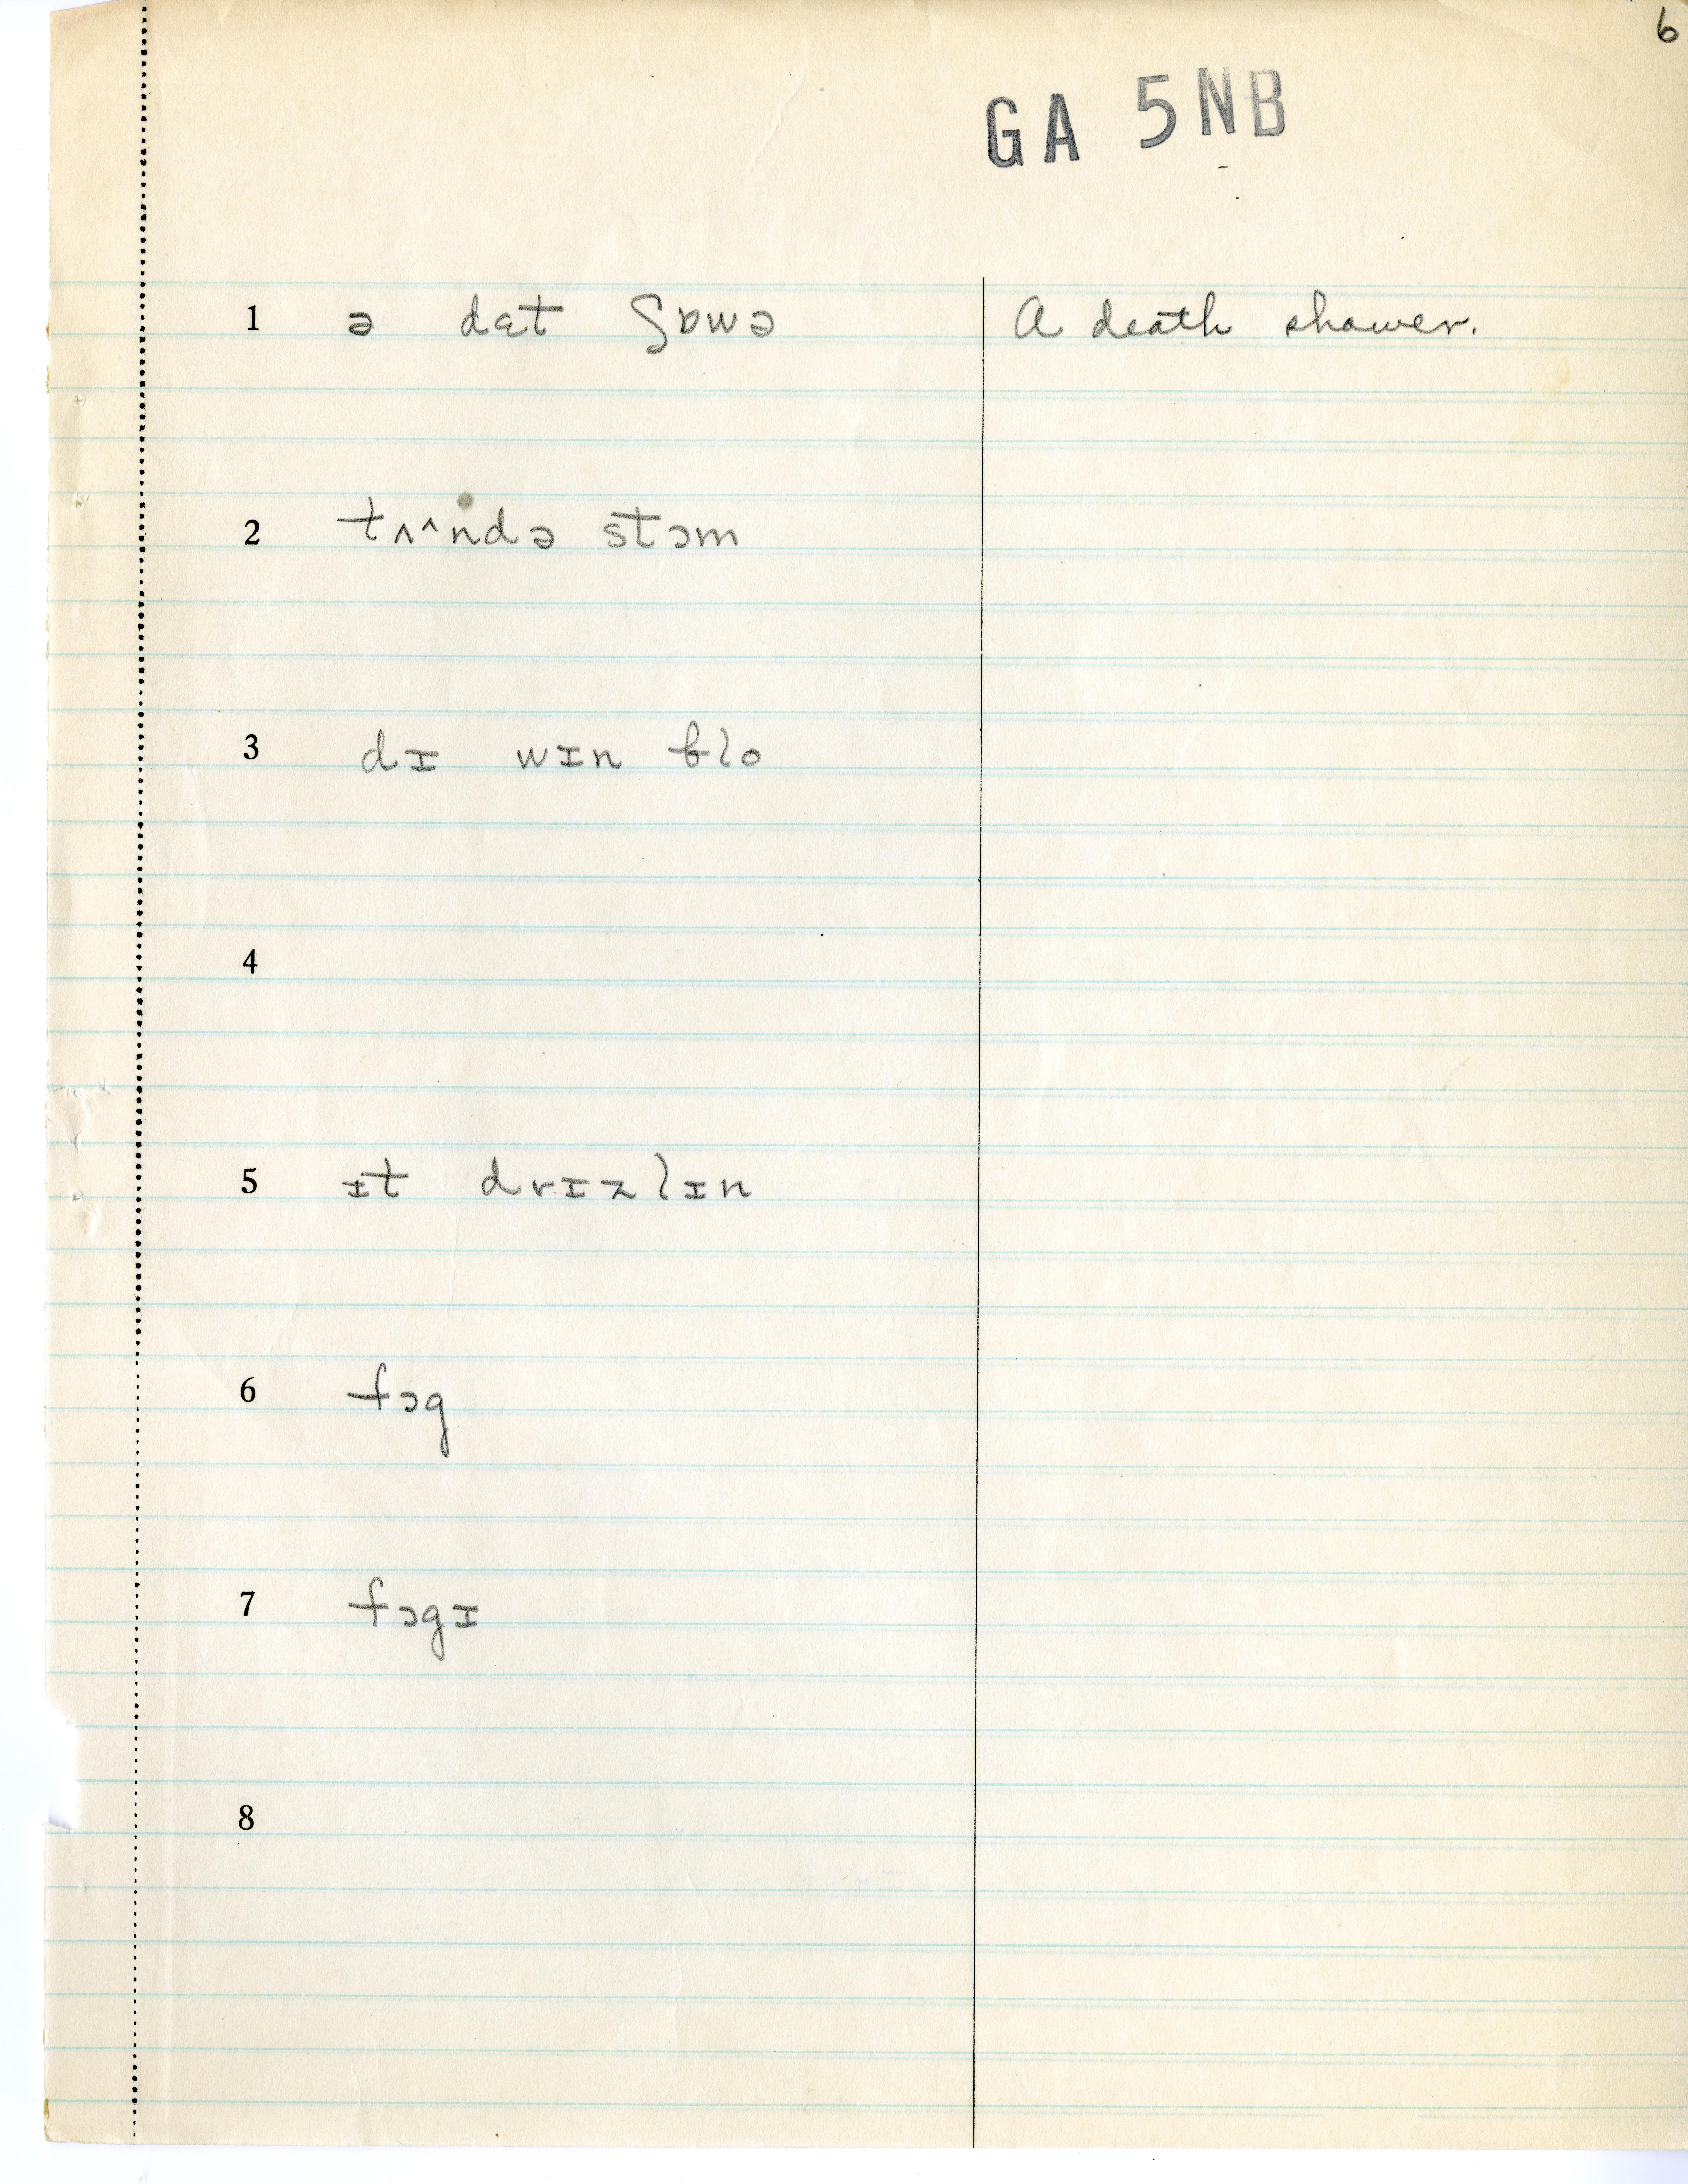 6
GA 5NB
1 ə dɛt ʃɒwə A death shower.
2 tʌ^ndə stɔm
3 dɪ wɪn ɓlo
4
5 ɪt drɪzlɪn
6 fɔg
7 fɔgɪ
8